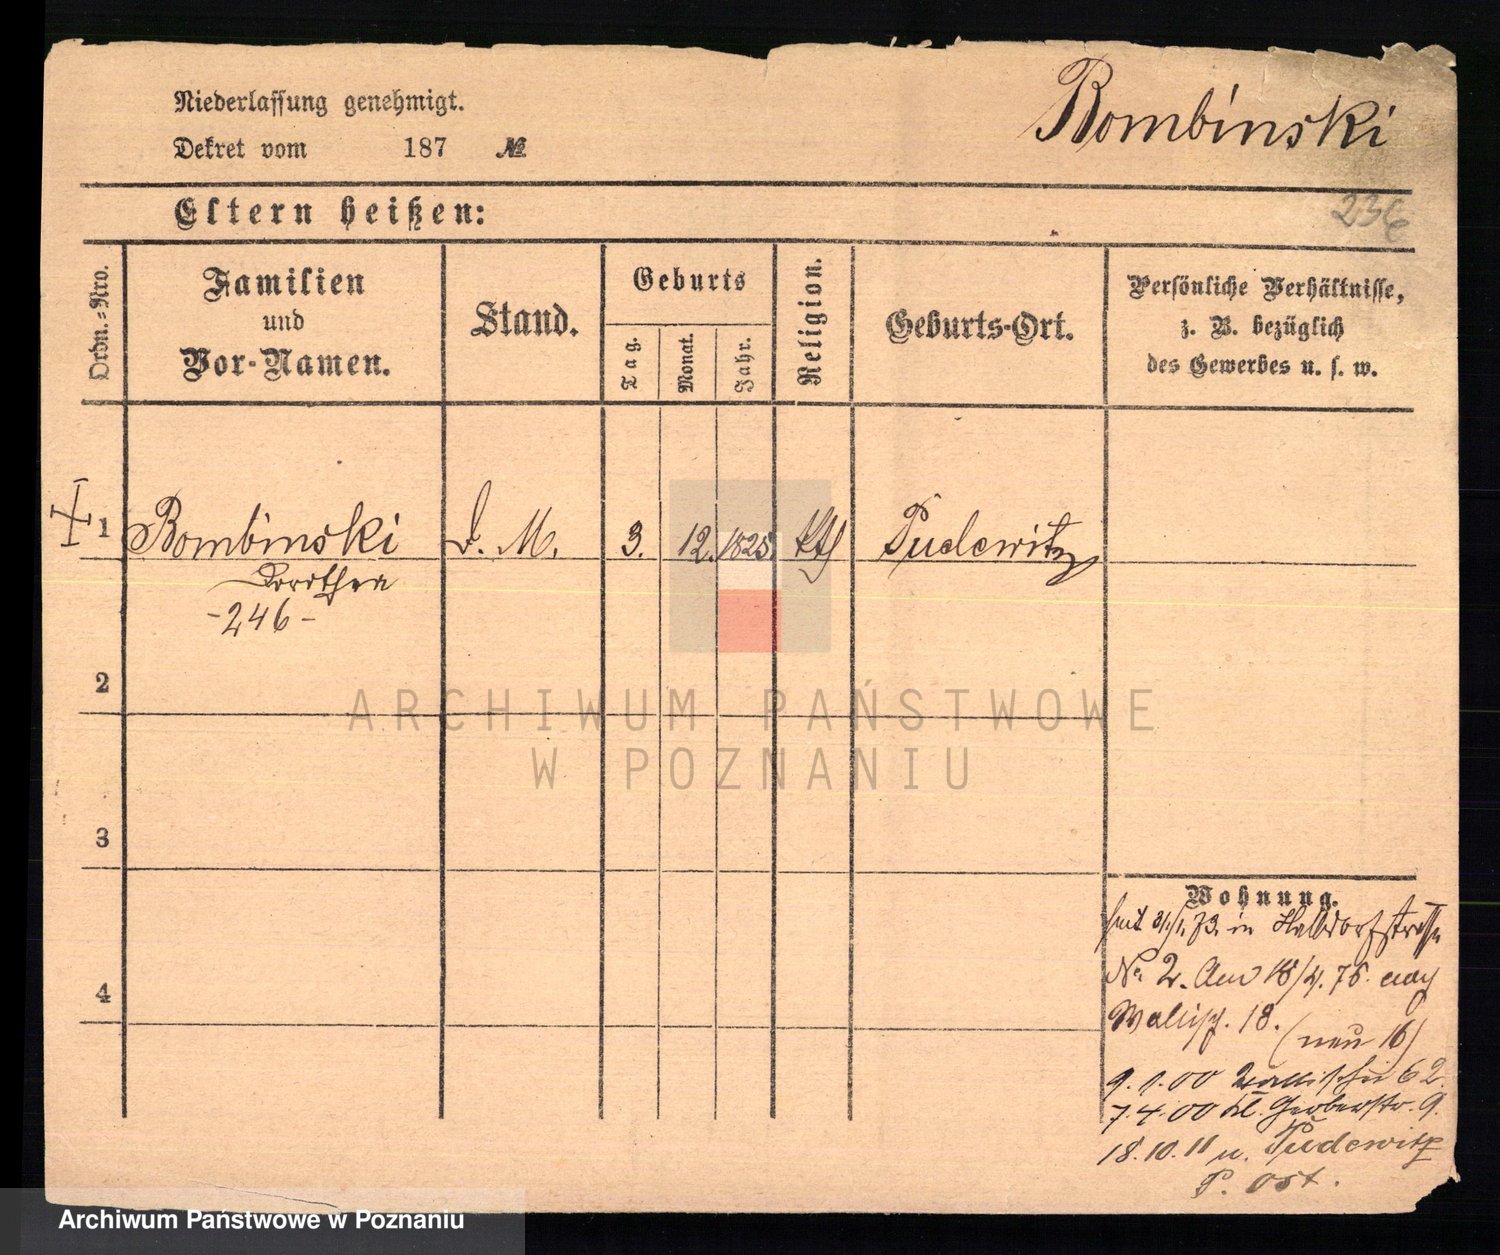 Niederlassung genehmigt.
Dekret vom 187 №
Bombinski
236
Eltern heißen:
Ordn.-Nro.
Familien
und
Vor-Namen.
Stand.
Geburts
Tag.
Monat.
Jahr.
Religion.
Geburts-Ort.
Persönliche Verhältnisse,
z. B. bezüglich
des Gewerbes u. s. w.
1 Bombinski D. M. 3. 12. 1825 kth Pudewitz
Dorothea
-246-
2
3
4
Wohnung.
seit 31/1. 73. in Halbdorfstrasse
No 2. Am 18/4. 75. nach
Wallisch. 18.
(neu 16)
9.1.00 Wallischei 62
7.4.00 Kl. Gerberstr. 9.
18.10.11 n. Pudewitz
P. Ost.
ARCHIWUM PAŃSTWOWE
W POZNANIU
Archiwum Państwowe w Poznaniu